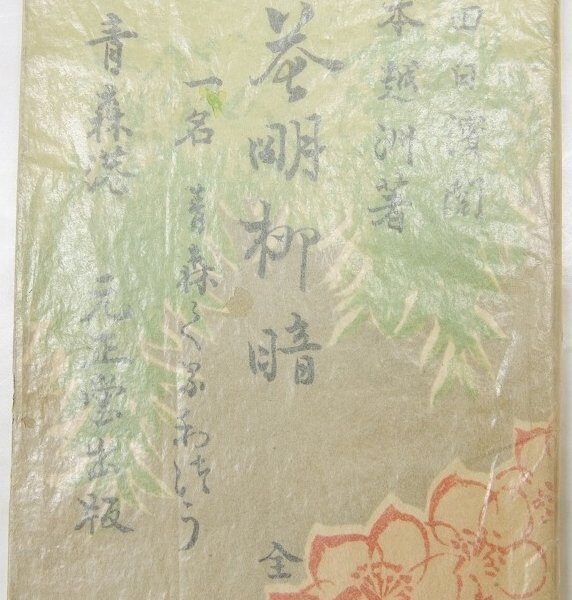 田日濱閲
本越洲著
花明柳暗
全
一名 青森くるわ
青森港 元正堂出版